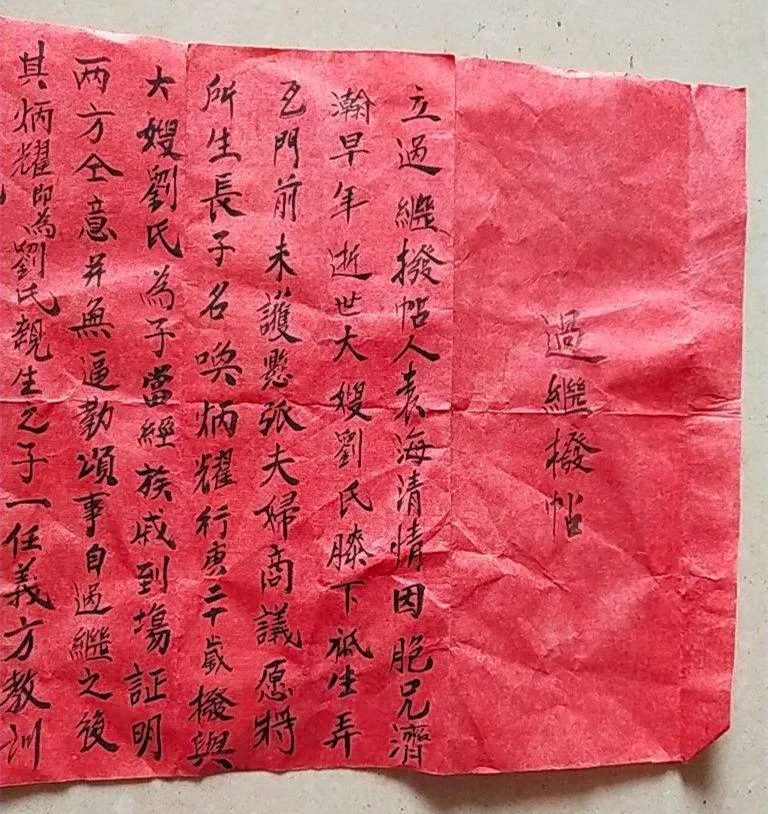 過繼撥帖
立過繼撥帖人袁海清情因胞兄濟
瀚早年逝世大嫂劉氏膝下祗生弄
瓦門前未護懸弧夫婦商議愿將
所生長子名喚炳耀行庚二十歲撥與
大嫂劉氏為子當經族戚到塲証明
两方仝意并無逼勒項事自過繼之後
其炳耀即為劉氏親生之子一任義方教训